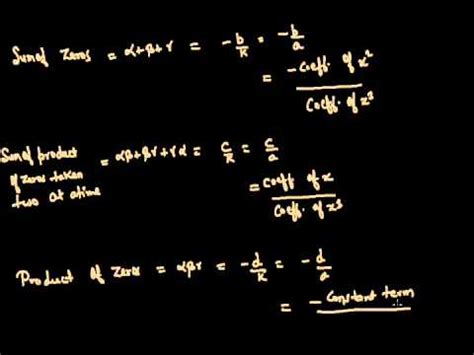 Sum of Zeros = α+β+γ = -b/k = -b/a
= -Coeff. of x²
Coeff. of x³
Sum of product of zeros taken two at a time = αβ+βγ+γα = c/k = c/a
= Coeff of x
Coeff. of x³
Product of Zeros = αβγ = -d/k = -d/a
= - Constant term